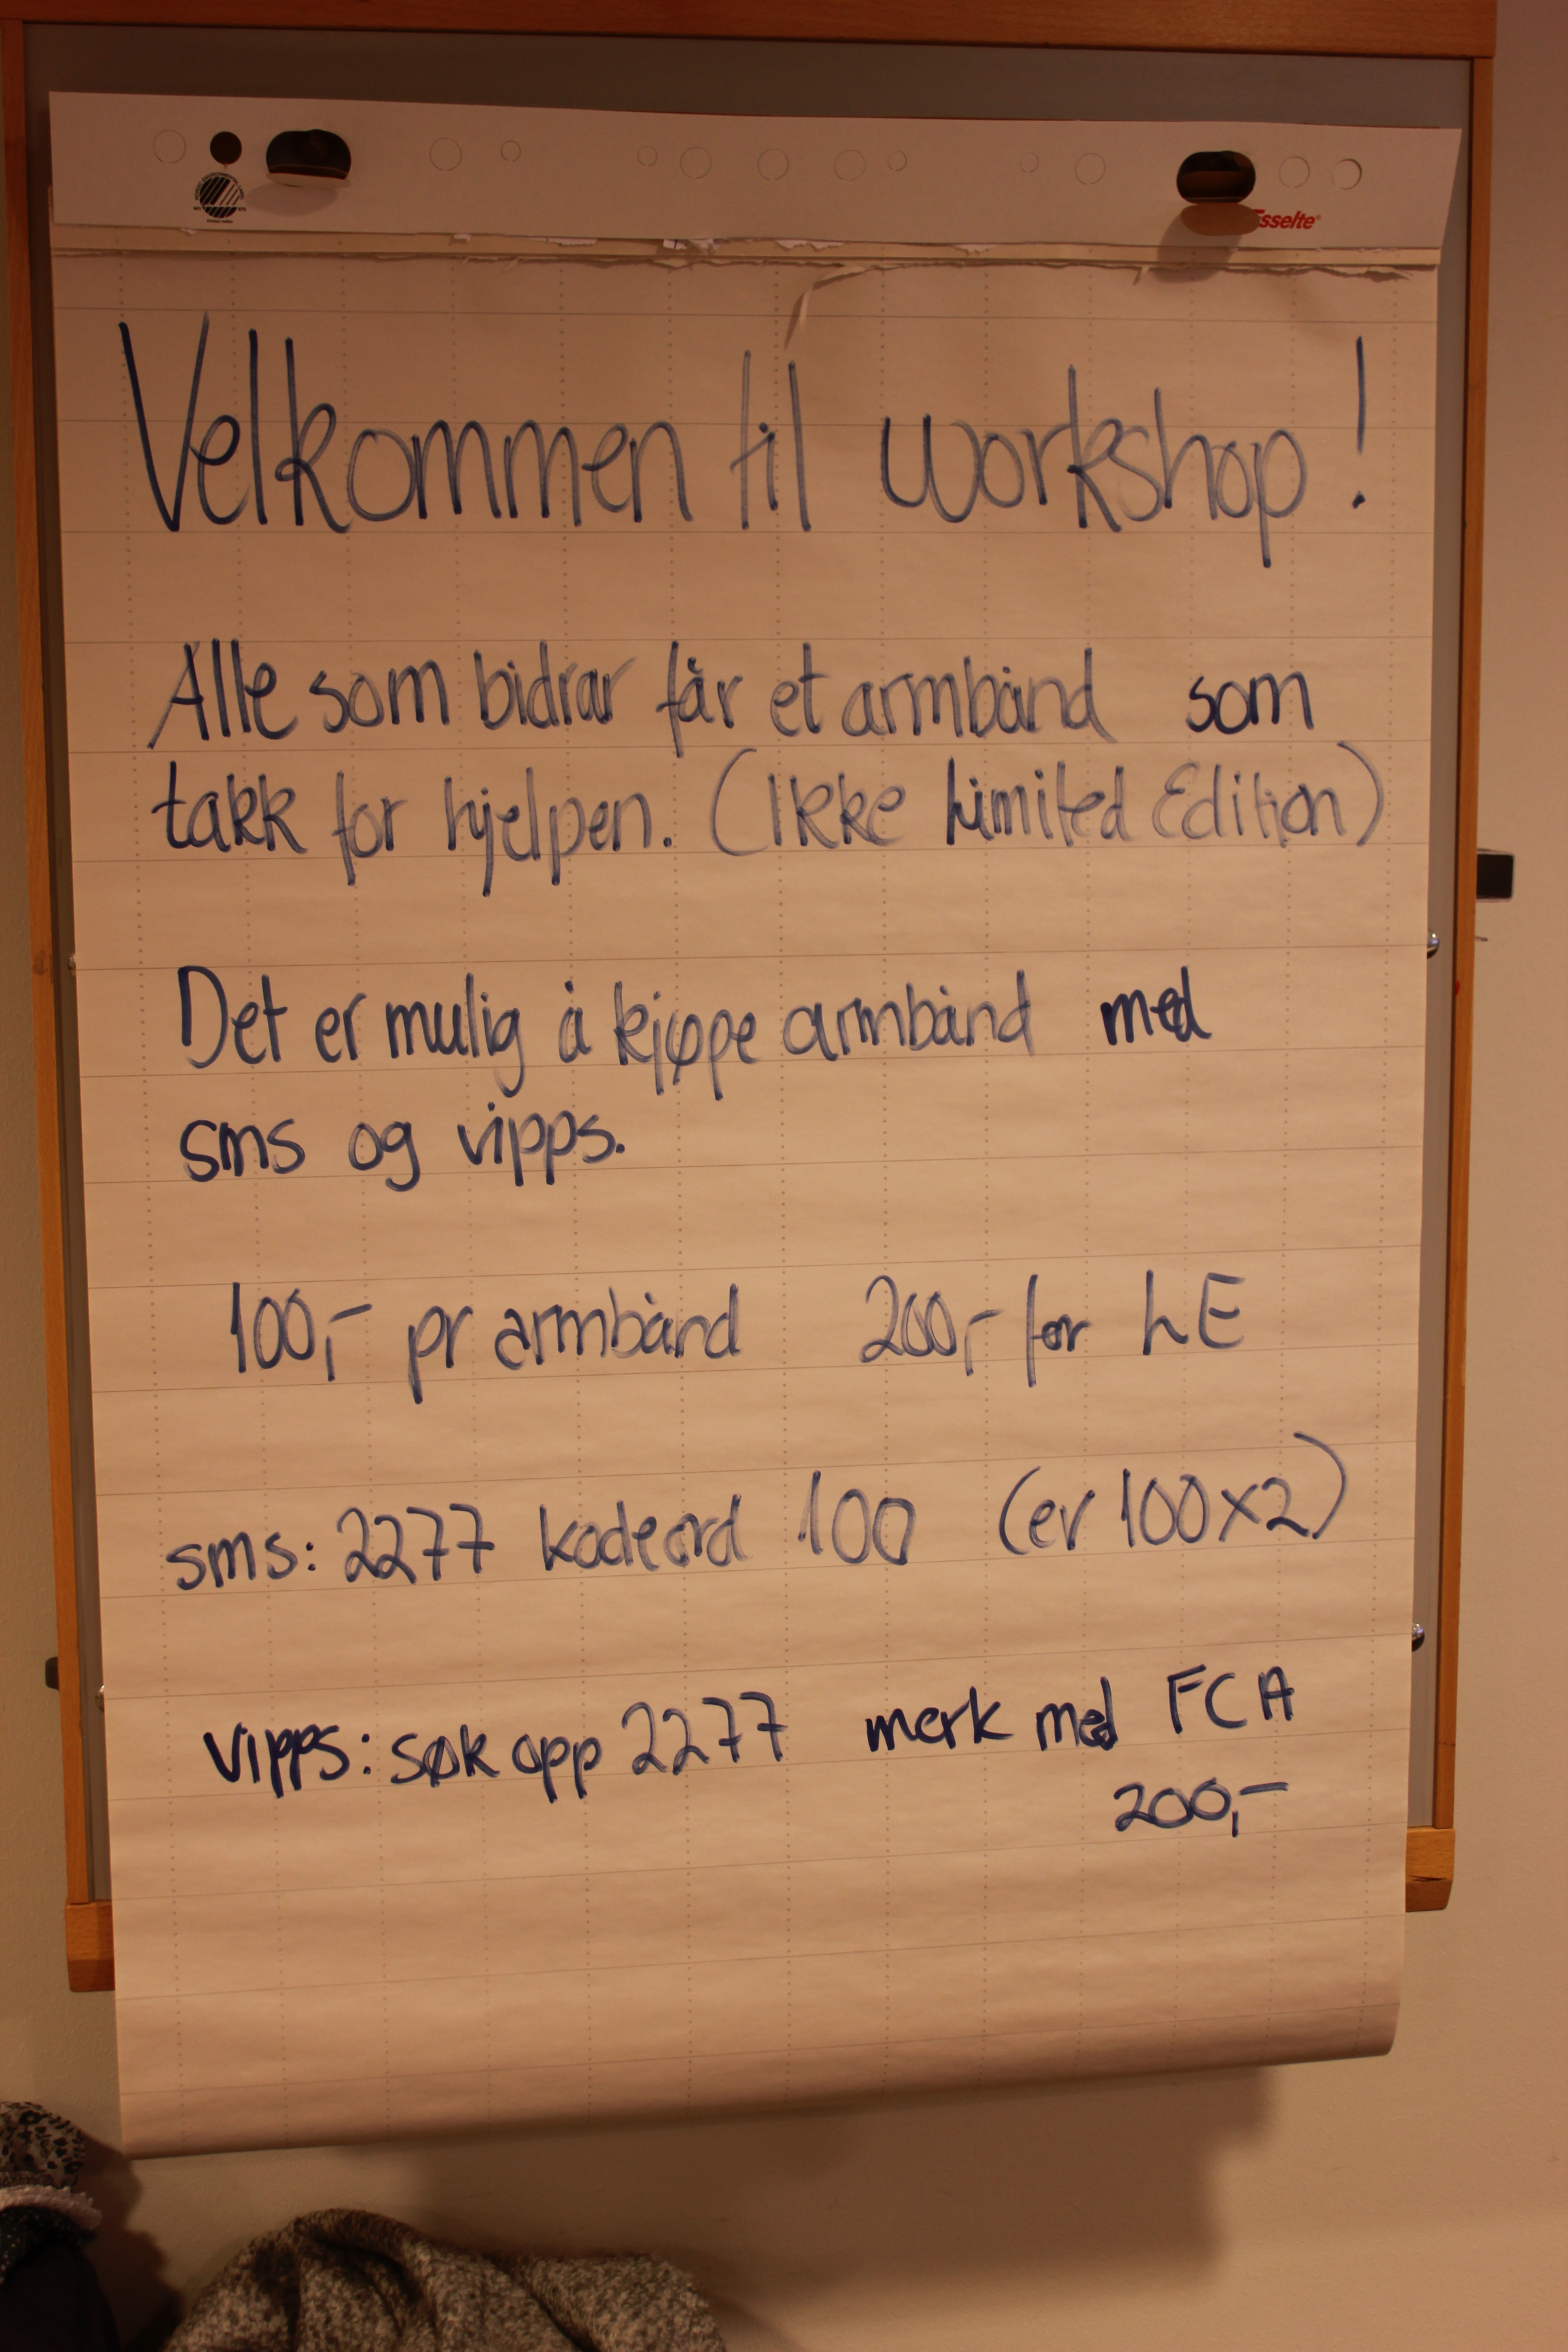 Esselte
Velkommen til workshop!
Alle som bidrar får et armbånd som
takk for hjelpen. (Ikke Limited Edition)
Det er mulig å kjøpe armbånd med
sms og vipps.
100,- pr armbånd 200,- for LE
sms: 2277 kodeord 100 (er 100x2)
vipps: søk opp 2277 merk med FCA
200,-